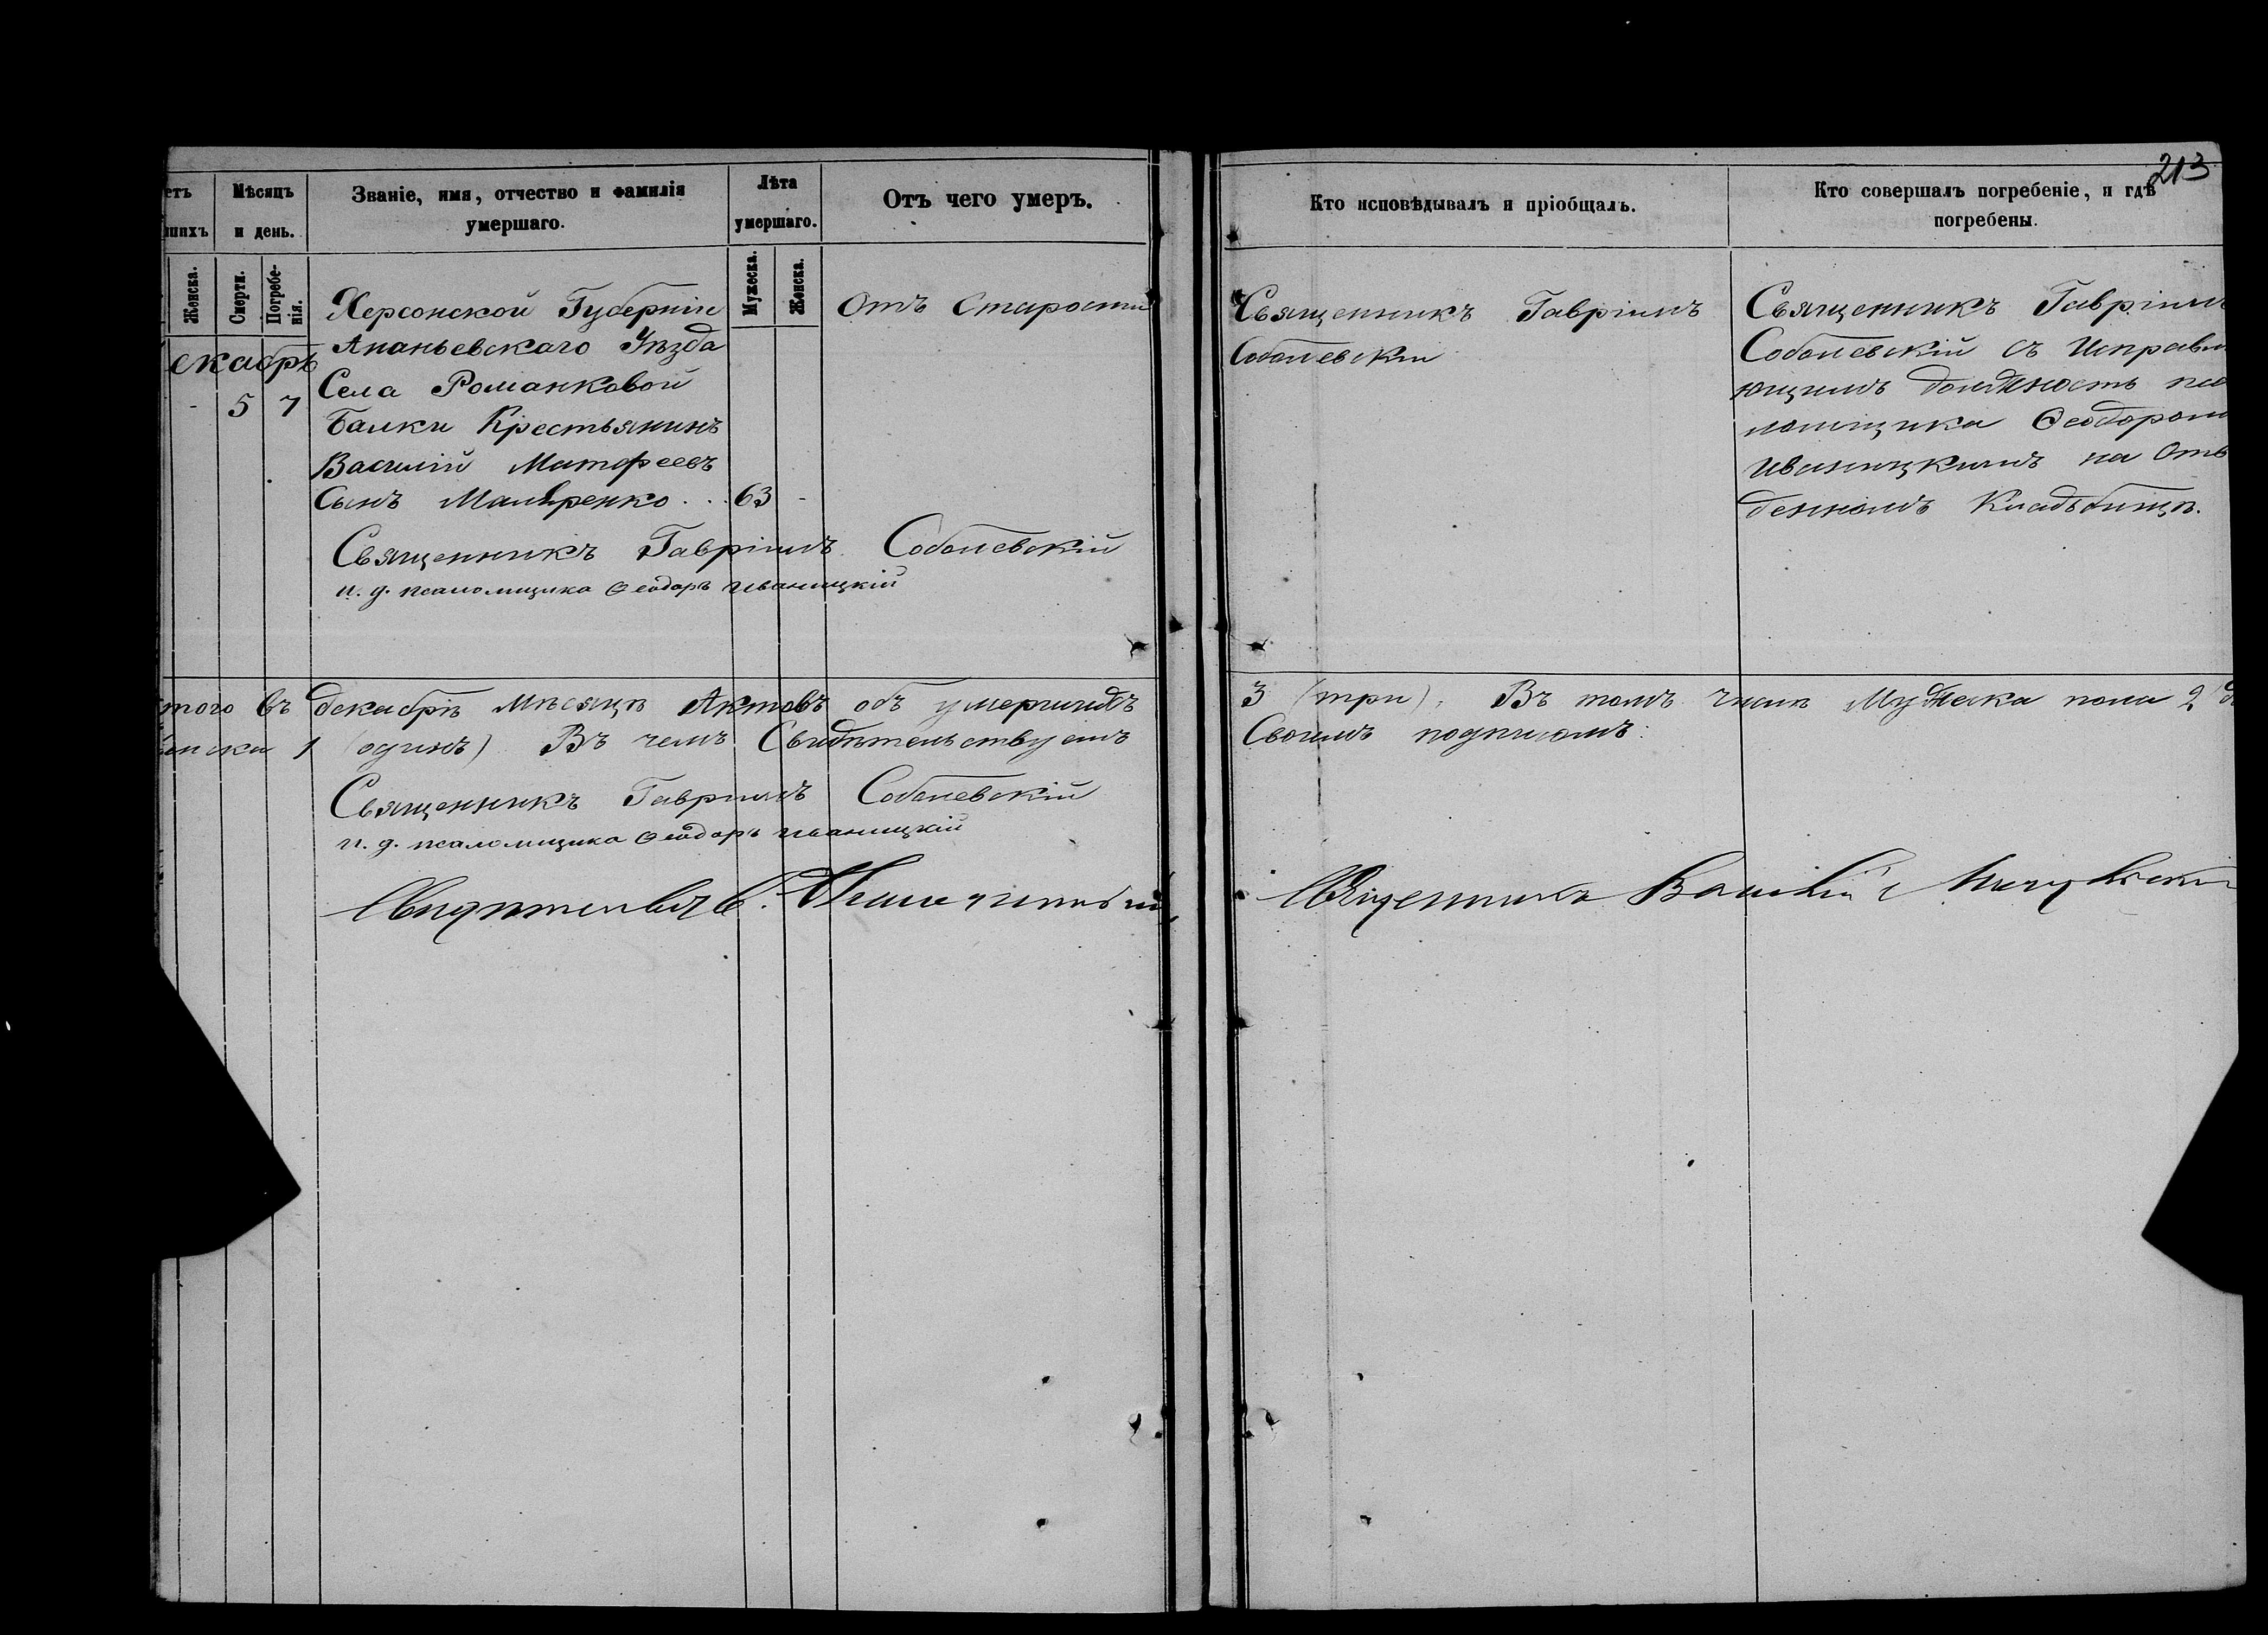 213
етъ
шихъ
Мѣсяцъ
и день.
Званіе, имя, отчество и фамилія
умершаго.
Лѣта
умершаго.
Отъ чего умеръ.
Кто исповѣдывалъ и пріобщалъ.
Кто совершалъ погребеніе, и гдѣ
погребены.
Женска.
Смерти.
Погребе-
нія.
Мужеска.
Женска.
екабрь
- 5 7
Херсонской Губерніи
Ананьевскаго Уѣзда
Села Романковой
Балки Крестьянинъ
Василій Матфеевъ
Сынъ Маляренко . . 63 -
Отъ Старости
Священникъ Гавріилъ
Соболевскій
Священникъ Гавріилъ
Соболевскій съ Исправл
ющимъ должность пса
ломщика Ѳеодоромъ
Иваницкимъ на Отве
денномъ Кладбищѣ.
Священникъ Гавріилъ Соболевскій
и. д. псаломщика Ѳеодоръ Иваницкій
того въ декабрѣ мѣсяцѣ Актовъ объ умершихъ 3 (три), Въ томъ числѣ Мужеска пола 2
енска 1 (одинъ) Въ чемъ Свидѣтельствуемъ Своимъ подписомъ:
Священникъ Гавріилъ Соболевскій
и. д. псаломщика Ѳеодоръ Иваницкій
Священникъ